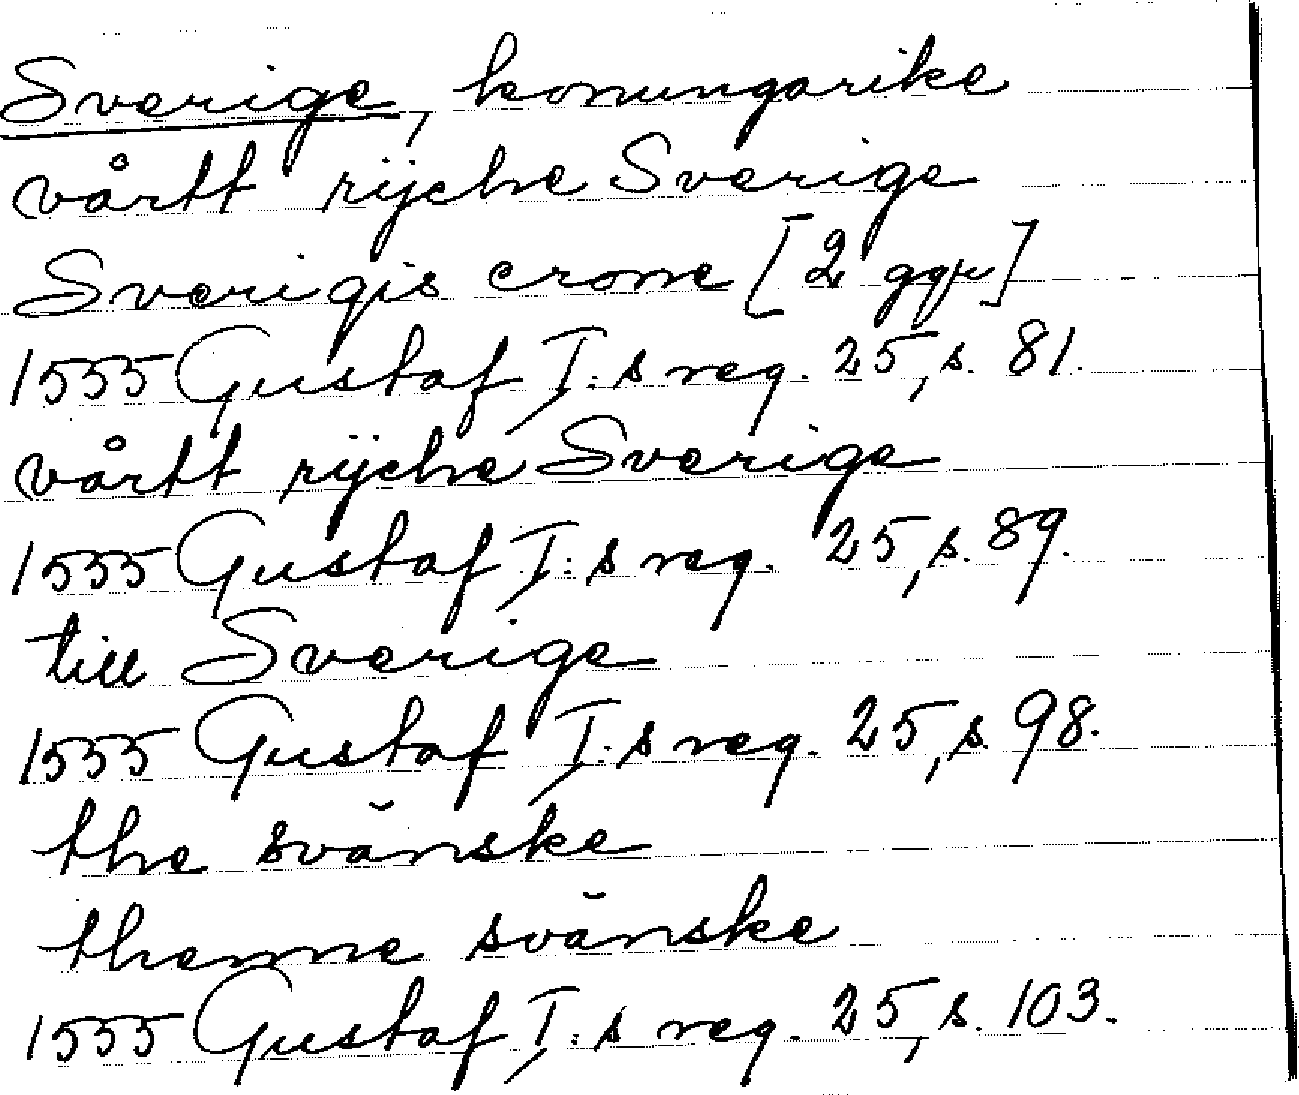 Sverige, konungarike
vårtt rijche Sverige
Sverigis crone [2 ggr]
1555 Gustaf I:s reg. 25, s. 81.
vårtt rijche Sverige
1555 Gustaf I:s reg. 25, s. 89.
till Sverige
1555 Gustaf I:s reg. 25, s. 98.
the svänske
thenne svänske
1555 Gustaf I:s reg. 25, s. 103.